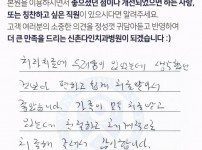 본원을 이용하시면서 좋으셨던 점이나 개선되었으면 하는 사항,
또는 칭찬하고 싶은 직원이 있으시다면 알려주세요.
고객 여러분의 소중한 의견을 정성껏 귀담아듣고 반영하여
더 큰 만족을 드리는 신촌다인치과병원이 되겠습니다 :)
치과치료에 두려움이 있었는데 생각했던
것보다 편하고 쉽게 치료받아서
좋았습니다. 가족이 모두 치료받고
있는데 친절하고 세심하게
치료해 주셔서 감사합니다.